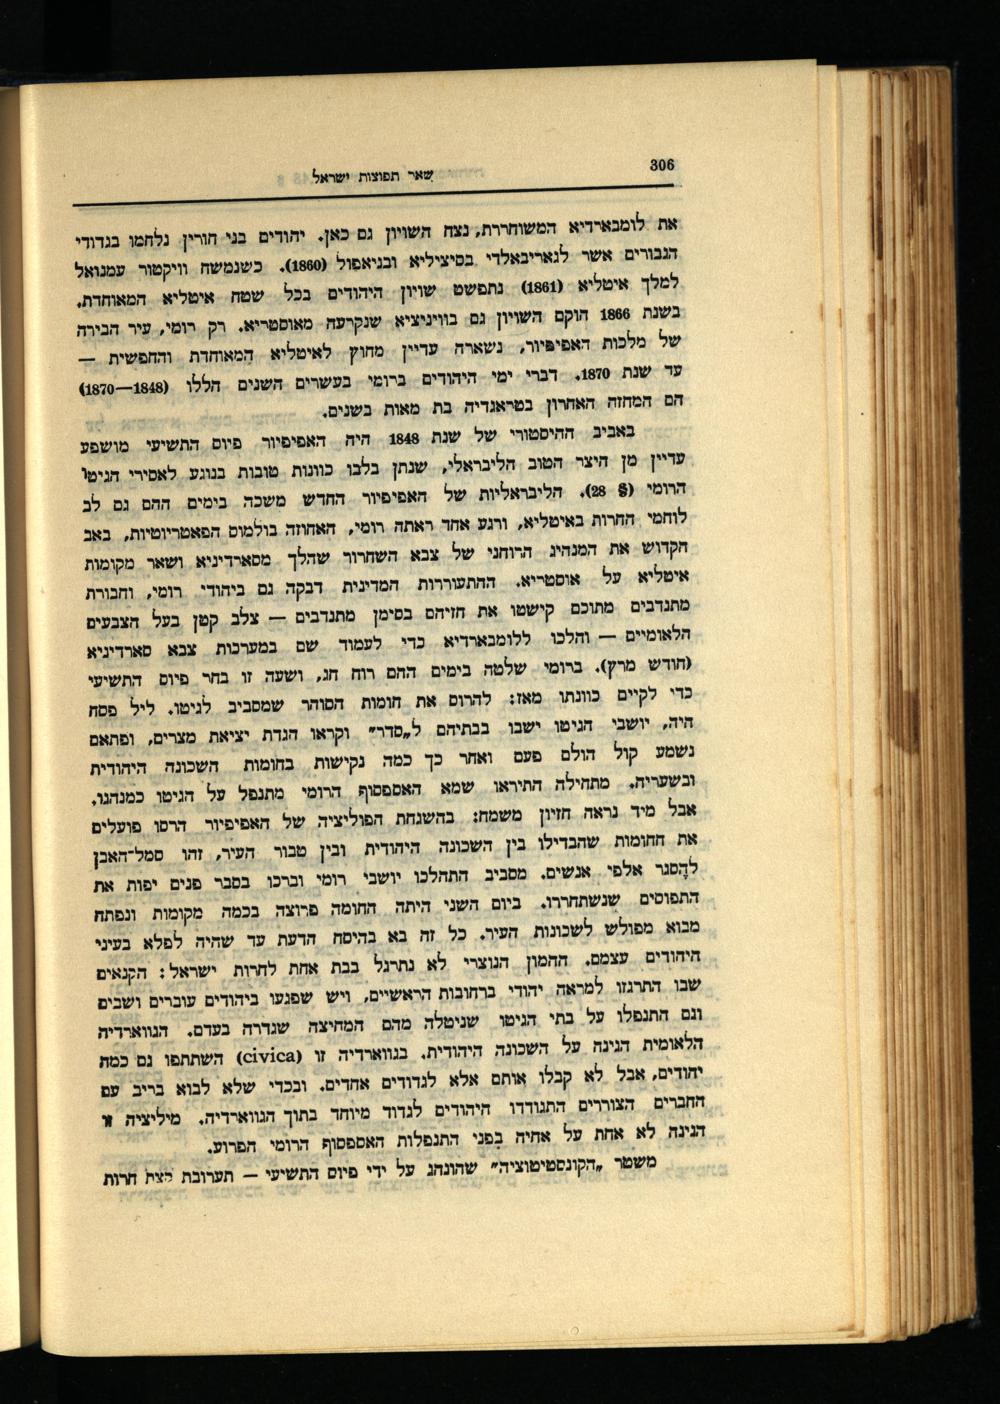 306
שאר תפוצות ישראל
את לומבארדיא המשוחררת, נצח השויון גם כאן. יהודים בני חורין נלחמו בגדודי
הגבורים אשר לגאריבאלדי בסיציליא ובניאפול (1860). כשנמשח וויקטור עמנואל
למלך איטליא (1861) נתפשט שויון היהודים בכל שטח איטליא המאוחדת.
בשנת 1866 הוקם השויון גם בוויניציא שנקרעה מאוסטריא. רק רומי, עיר הבירה
של מלכות האפיפיור, נשארה עדיין מחוץ לאיטליא המאוחדת והחפשית —
עד שנת 1870. דברי ימי היהודים ברומי בעשרים השנים הללו (1848—1870)
הם המחזה האחרון בטראגדיה בת מאות בשנים.
באביב ההיסטורי של שנת 1848 היה האפיפיור פיוס התשיעי מושפע
עדיין מן היצר הטוב הליבראלי, שנתן בלבו כוונות טובות בנוגע לאסירי הגיטו
הרומי (§ 28). הליבראליות של האפיפיור החדש משכה בימים ההם גם לב
לוחמי החרות באיטליא, ורגע אחד ראתה רומי, האחוזה בולמוס הפאטריוטיות, באב
הקדוש את המנהיג הרוחני של צבא השחרור שהלך מסארדיניא ושאר מקומות
איטליא על אוסטריא. ההתעוררות המדינית דבקה גם ביהודי רומי, וחבורת
מתנדבים מתוכם קישטו את חזיהם בסימן מתנדבים — צלב קטן בעל הצבעים
הלאומיים — והלכו ללומבארדיא כדי לעמוד שם במערכות צבא סארדיניא
(חודש מרץ). ברומי שלטה בימים ההם רוח חג, ושעה זו בחר פיוס התשיעי
כדי לקיים כוונתו מאז: להרוס את חומות הסוהר שמסביב לגיטו. ליל פסח
היה, יושבי הגיטו ישבו בבתיהם ל„סדר” וקראו הגדת יציאת מצרים, ופתאם
נשמע קול הולם פעם ואחר כך כמה נקישות בחומות השכונה היהודית
ובשעריה. מתחילה התיראו שמא האספסוף הרומי מתנפל על הגיטו כמנהגו,
אבל מיד נראה חזיון משמח: בהשגחת הפוליציה של האפיפיור הרסו פועלים
את חחומות שהבדילו בין השכונה היהודית ובין טבור העיר, זהו סמל־האבן
להסגר אלפי אנשים. מסביב התהלכו יושבי רומי וברכו בסבר פנים יפות את
התפוסים שנשתחררו. ביום השני היתה החומה פרוצה בכמה מקומות ונפתח
מבוא מפולש לשכונות העיר. כל זה בא בהיסח הדעת עד שהיה לפלא בעיני
היהודים עצמם. ההמון הנוצרי לא נתרגל בבת אחת לחרות ישראל: הקנאים
שבו התרגזו למראה יהודי ברחובות הראשיים, ויש שפגעו ביהודים עוברים ושבים
וגם התנפלו על בתי הגיטו שניטלה מהם המחיצה שגדרה בעדם. הגווארדיה
הלאומית הגינה על השכונה היהודית. בגווארדיה זו (civica) השתתפו גם כמה
יהודים, אבל לא קבלו אותם אלא לגדודים אחדים. ובכדי שלא לבוא בריב עם
החברים הצוררים התגודדו היהודים לגדוד מיוחד בתוך הגווארדיה. מיליציה זו
הגינה לא אחת על אחיה בפני התנפלות האספסוף הרומי הפרוע.
משטר „הקונסטיטוציה” שהונהג על ידי פיוס התשיעי — תערובת קצת חרות